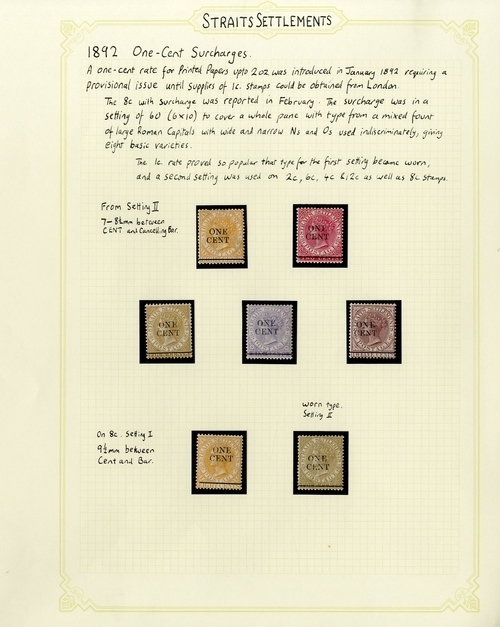 STRAITS SETTLEMENTS
1892 One-Cent Surcharges.
A one-cent rate for Printed Papers upto 2oz was introduced in January 1892 requiring a
provisional issue until supplies of 1c. stamps could be obtained from London.
The 8c with surcharge was reported in February. The surcharge was in a
setting of 60 (6x10) to cover a whole pane with type from a mixed fount
of large Roman Capitals with wide and narrow Ns and Os used indiscriminately, giving
eight basic varieties.
The 1c. rate proved so popular that type for the first setting became worn,
and a second setting was used on 2c, 6c, 4c & 12c as well as 8c stamps.
From Setting II
7-8½mm between
CENT and Cancelling Bar.
ONE
CENT
ONE
CENT
ONE
CENT
ONE
CENT
ONE
CENT
worn type.
Setting II
On 8c. Setting I
9½mm between
Cent and Bar.
ONE
CENT
ONE
CENT